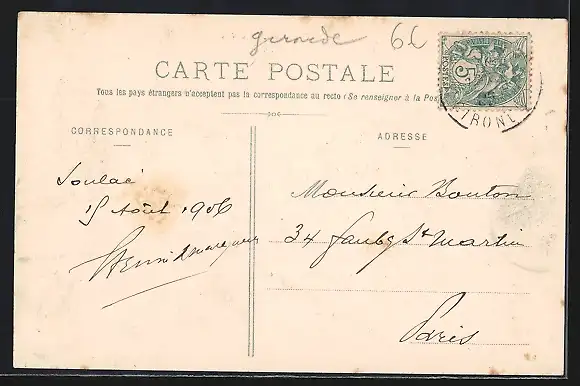 gironde 66
CARTE POSTALE
Tous les pays étrangers n'acceptent pas la correspondance au recto (Se renseigner à la Pos
CORRESPONDANCE
ADRESSE
Soulac
15 Août 1906
Henri
Monsieur Bouton
34 faubg St Martin
Paris
5c
GIRONDE